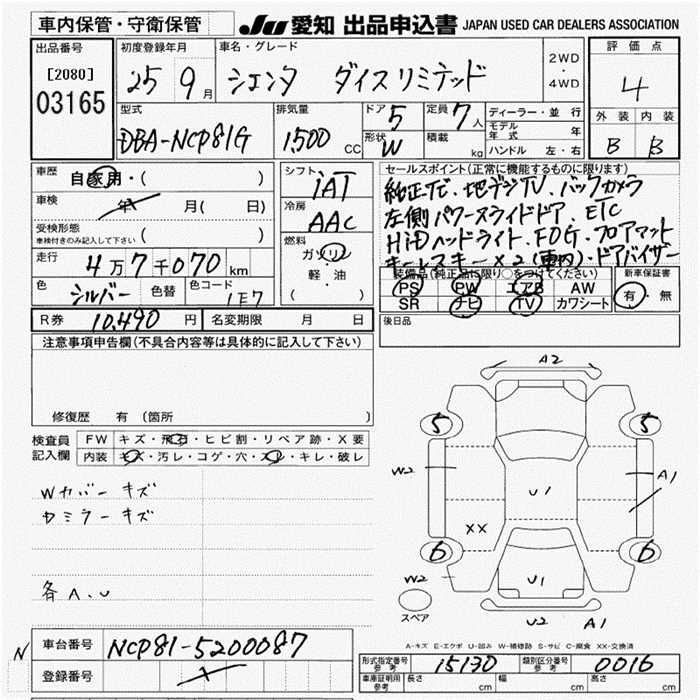 車内保管・守衛保管
JU 愛知 出品申込書 JAPAN USED CAR DEALERS ASSOCIATION
出品番号 初度登録年月 車名・グレード 評価点
[2080] 25 9月 シエンタ ダイスリミテッド 2WD・4WD 4
03165
型式 排気量 ドア 5 定員 7人 ディーラー・並行 外装 内装
DBA-NCP81G 1500 CC 形状 W 積載 kg モデル年式 年 B B
ハンドル 左・右
車歴 自家用・( ) シフト セールスポイント(正常に機能するものに限ります)
iAT 純正ナビ.地デジTV.バックカメラ
車検 年 月( 日) 冷房 左側パワースライドドア.ETC
AAC HiDヘッドライト.FOG.フロアマット
受検形態 車検付きのみ記入して下さい ( ) 燃料 キーレスキー×2(車内)・ドアバイザー
走行 4万7千070km ガソリン 装備品(純正品に限り○をつけてください) 新車保証書
軽・油 PS PW エアB AW 有・無
色 シルバー 色替 色コード 1E7 ( ) SR ナビ TV カワシート
R券 10,490円 名変期限 月 日 後日品
注意事項申告欄(不具合内容等は具体的に記入して下さい)
修復歴 有(箇所 )
検査員記入欄 FW キズ・飛石・ヒビ割・リペア跡・X要
内装 キズ・汚レ・コゲ・穴・スレ・キレ・破レ
Wカバーキズ
カミラーキズ
各A.U
A2
5 5
W2 A1
U1
XX
6 6
W2 U1
スペア
U2 A1
A-キズ E-エクボ U-凹み W-補修跡 S-サビ C-腐食 XX-交換済
N 車台番号 NCP81-5200087
登録番号
型式指定番号 参考 15130 類別区分番号 参考 0016
車庫証明用 参考 長さ cm 幅 cm 高さ cm